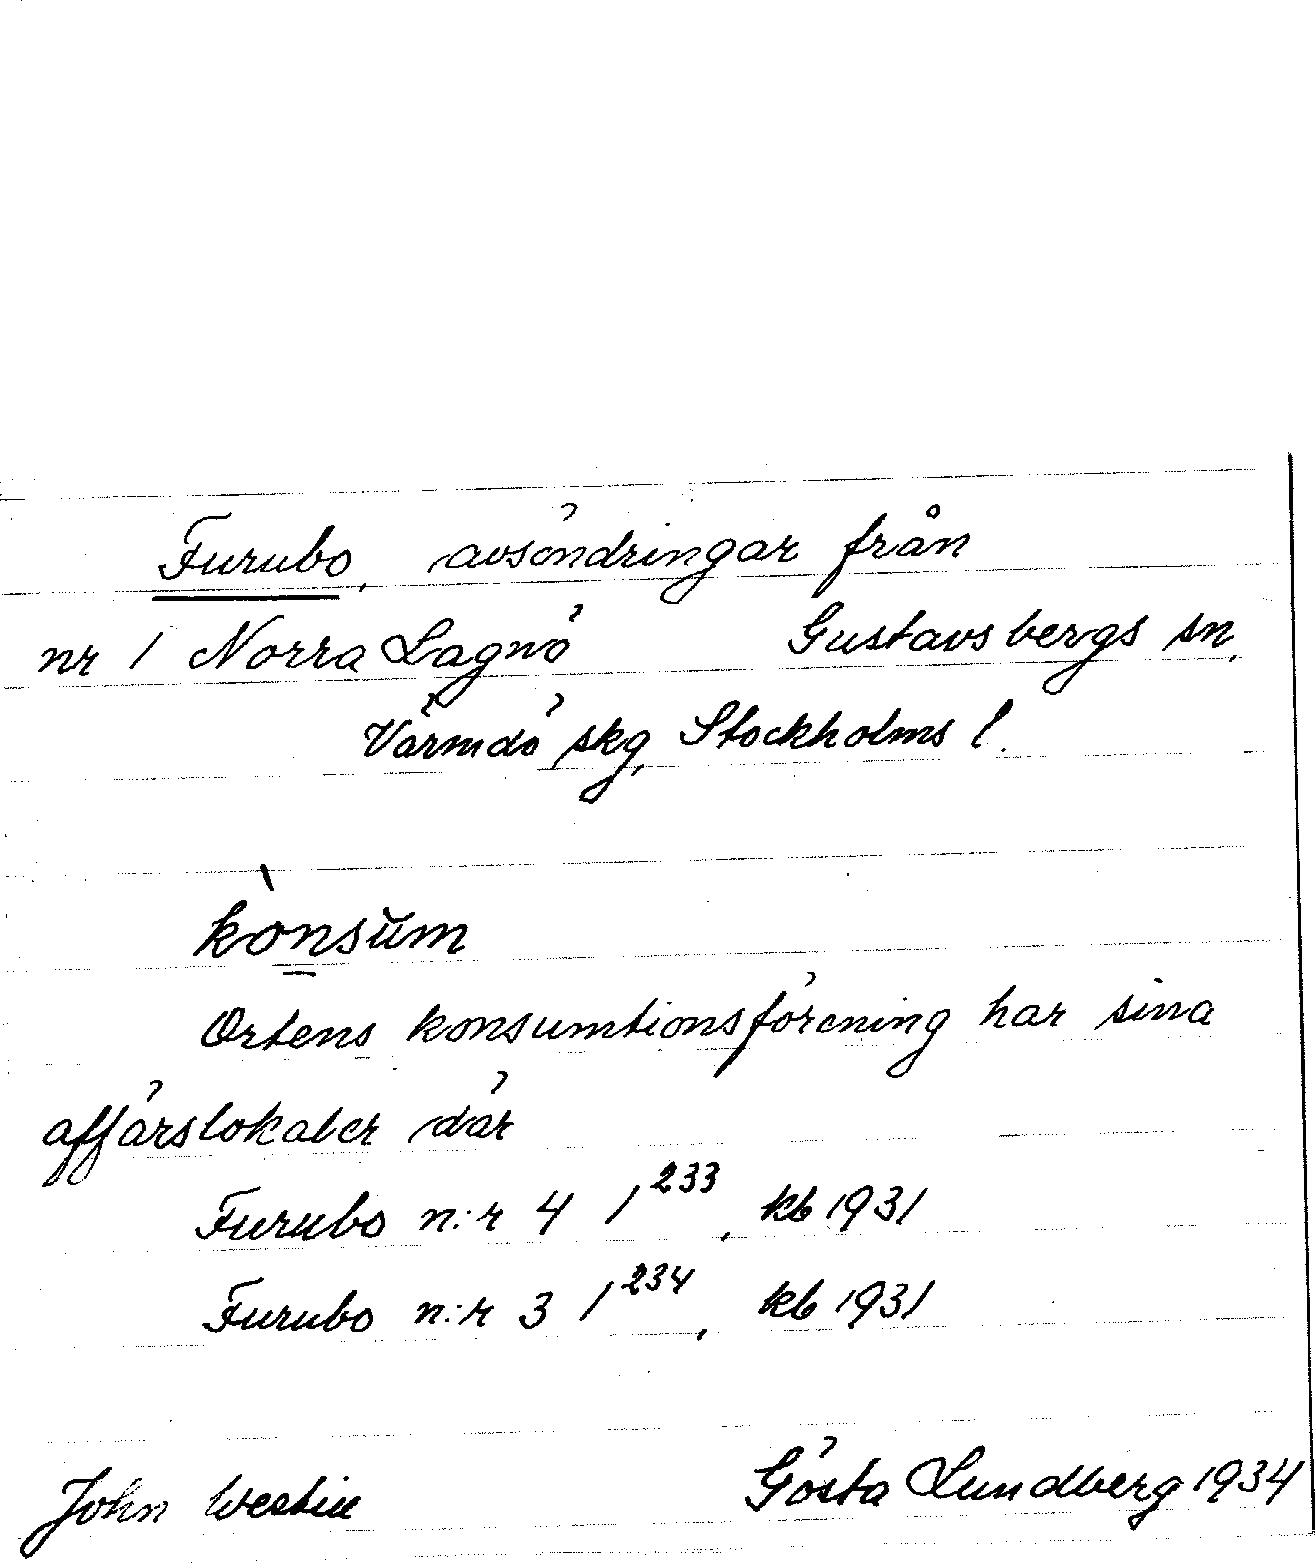 Furubo, avsöndringar från
nr 1 Norra Lagnö Gustavsbergs sn,
Värmdö skg, Stockholms l.
kònsŭm
Ortens konsumtionsförening har sina
affärslokaler där
Furubo n:r 4 1²³³, kb 1931
Furubo n:r 3 1²³⁴, kb 1931
John Westin Gösta Lundberg 1934